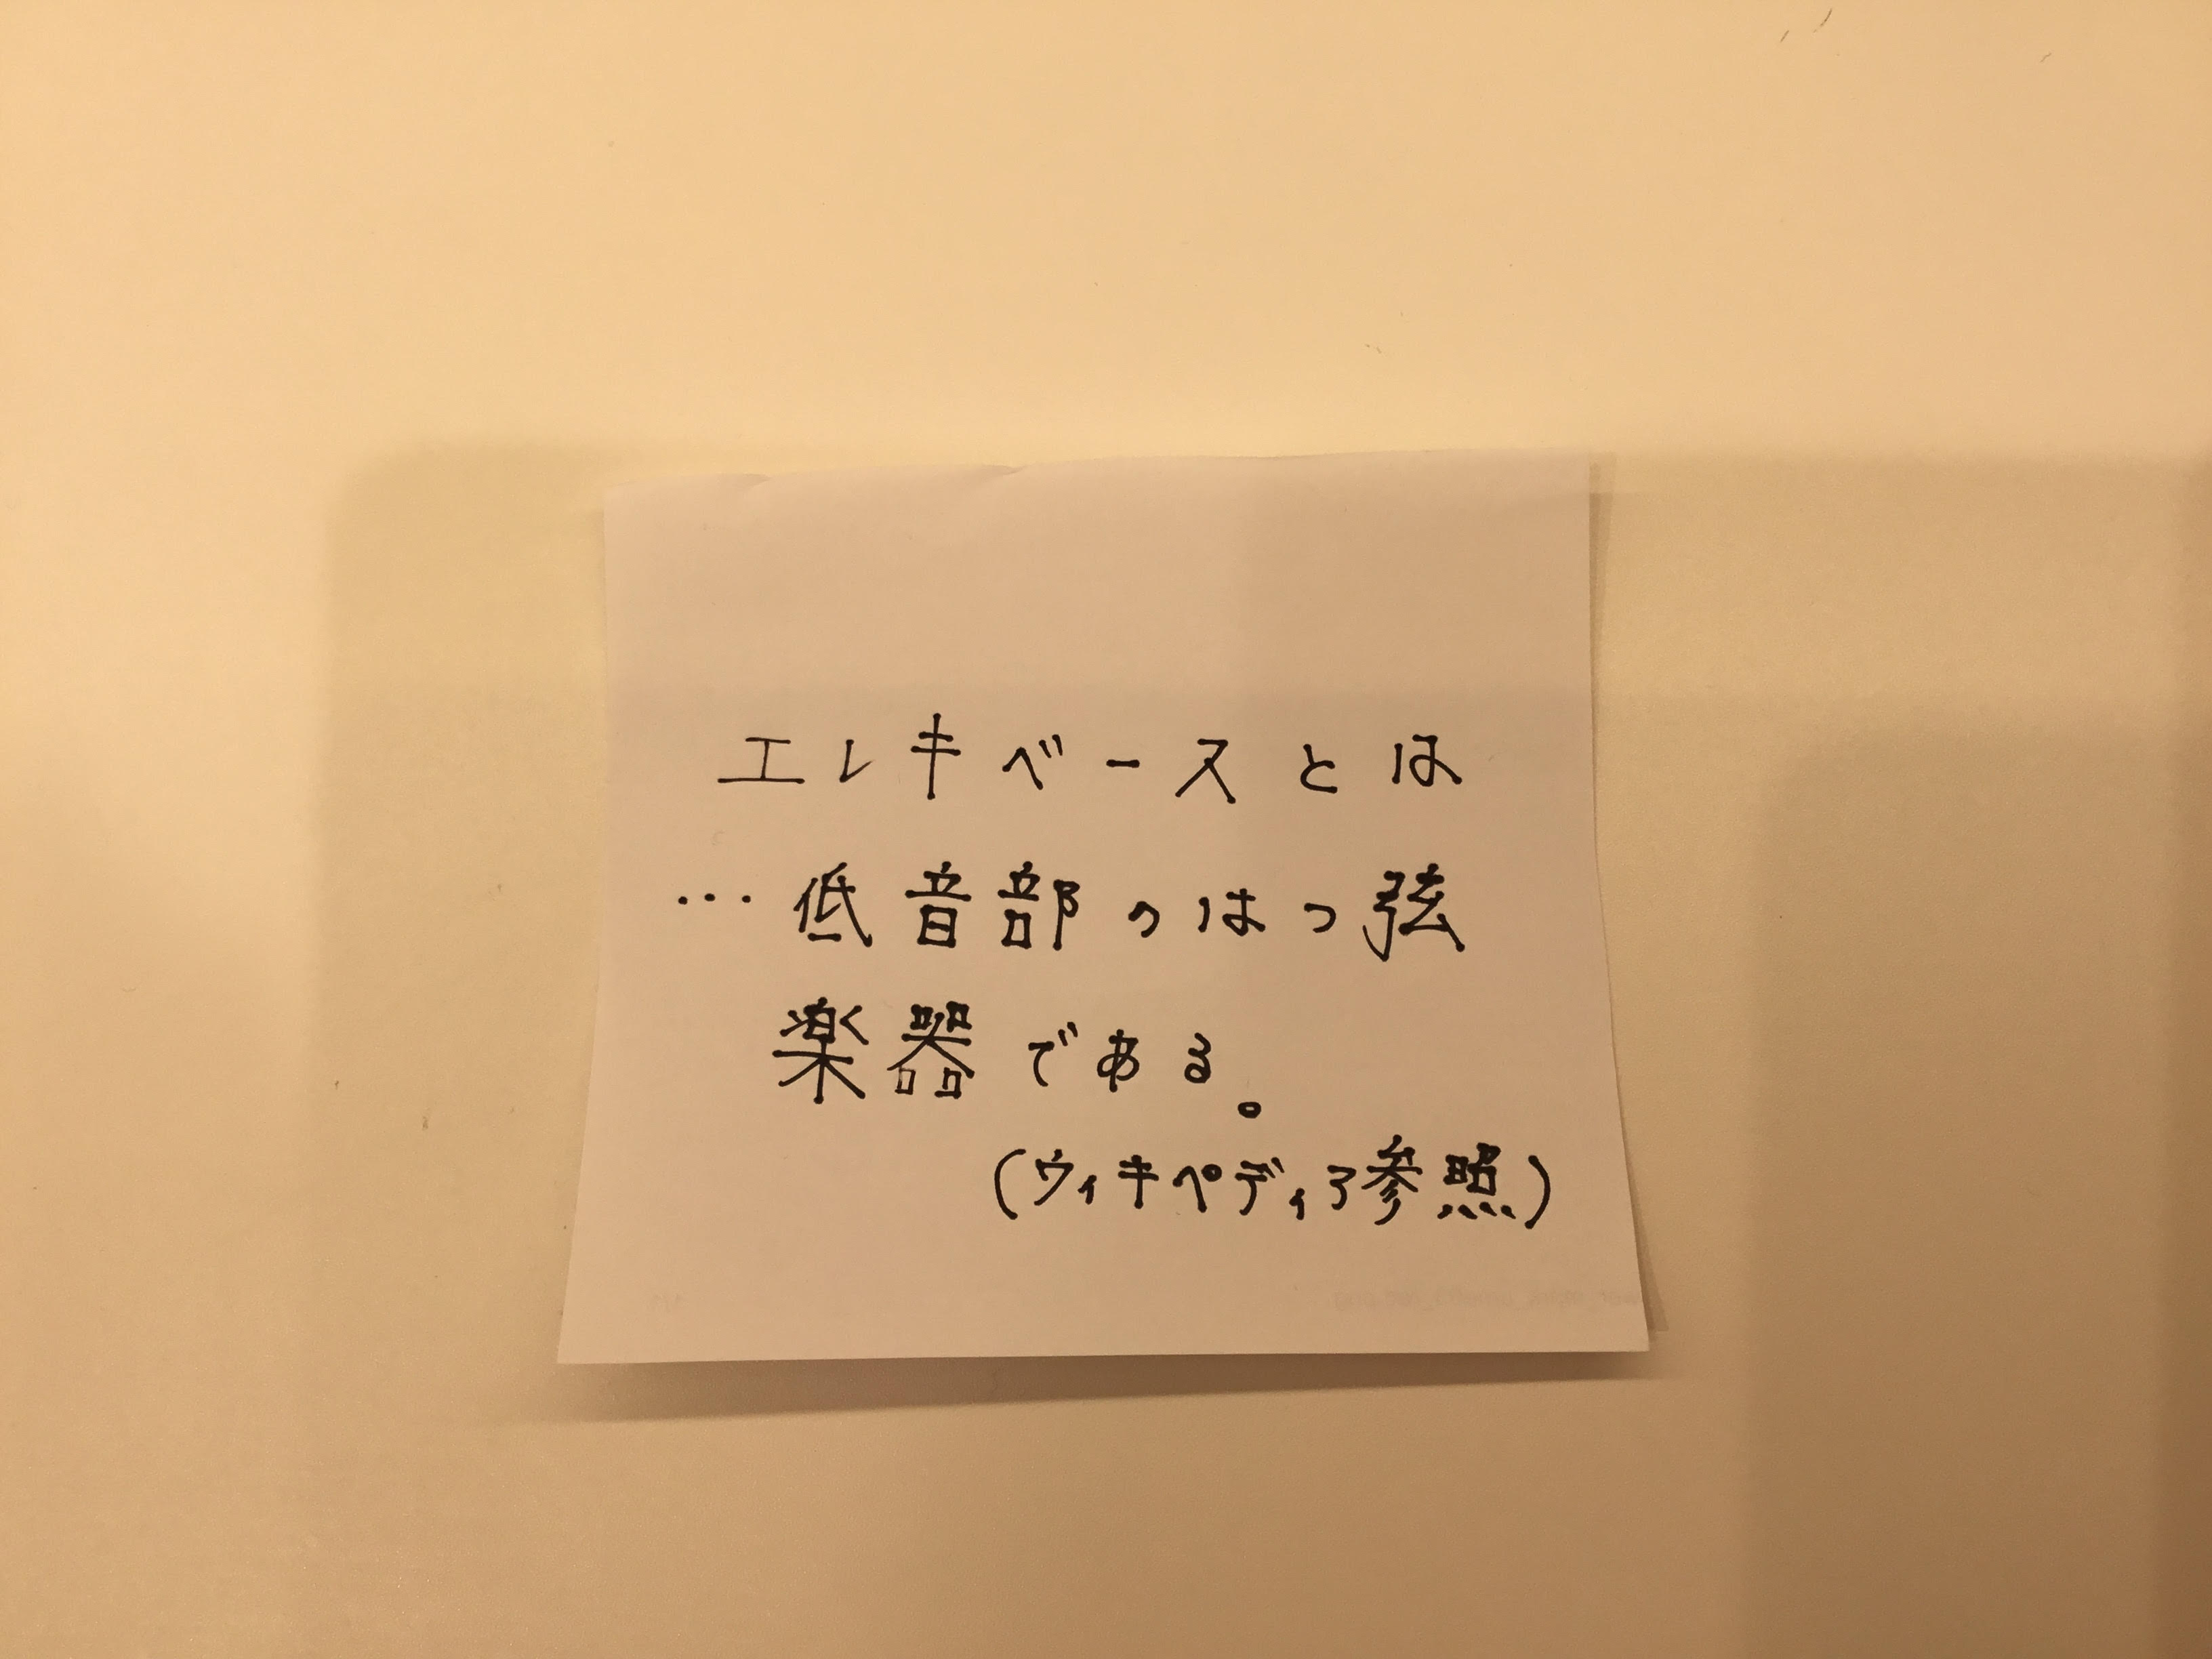 エレキベースとは
…低音部のはつ弦
楽器である。
(ウィキペディア参照)